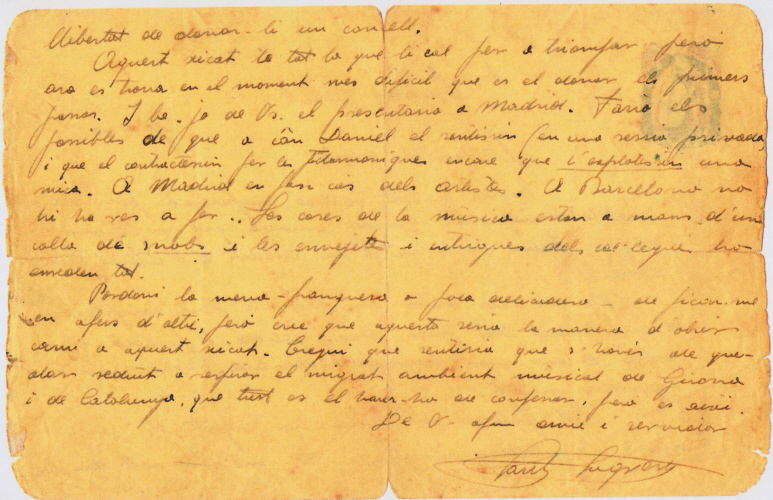 llibertat de donar-li un consell.
Aquest xicot te tot lo que li cal per a triomfar, pero
ara es troba en el moment mes dificil que es el donar els primers
passos. I be, jo de Vs. el presentaria a Madrid. Faria els
possibles de que a can Daniel el sentissin (en una sessio privada)
i que el contractessin per les Filarmoniques encare que l'explotessin una
mica. A Madrid en fan cas dels artistes. A Barcelona no
hi ha res a fer.. Les coses de la música estan a mans d'una
colla de snobs i les envejetes i intrigues dels col·legues ho
enreden tot.
Perdoni la meva franquesa o poca delicadesa - de ficar-me
en afers d'altri, pero crec que aquesta seria la manera d'obrir
cami a aquest xicot. Cregui que sentiria que s'haves de que-
dar reduit a respirar el migrat ambient músical de Girona
i de Catalunya, que trist es el haver-ho de confessar, pero es aixi.
De V. afm amic i servidor